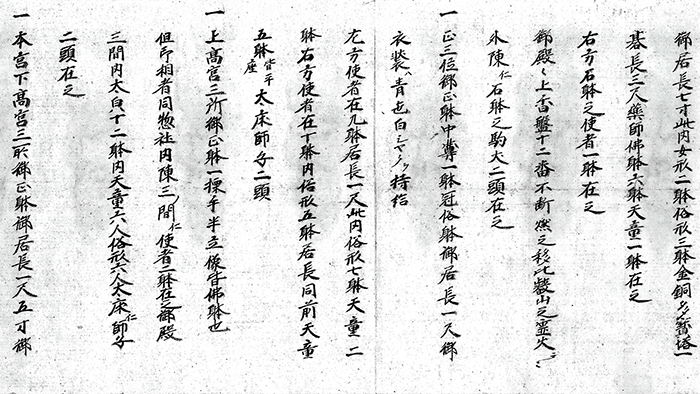 御居長七寸此内女形二躰俗形三躰金銅多宝塔一
基長三尺薬師佛躰六躰天童一躰在之
右方石躰之使者一躰在之
御殿ノ上香盤十二番不断燃之移此嶽山之霊火
外陳仁石躰之駒犬二頭在之
一正三位御正躰中尊一躰冠俗躰御居長一尺御
衣装ハ青色白シヤクヲ持給
左方使者在九躰居長一尺此内俗形七躰天童二
躰右方使者在丁躰内俗形五躰居長同前天童
五躰皆平座太床師子二頭
一上高宮三所御正躰一搩手半立像皆佛躰也
但形相者同惣社内陳三間仁使者二躰在之御殿
三間内太白十二躰内天童六人俗形六人大床仁師子
二頭在之
一本宮下高宮三所御正躰御居長一尺五寸御